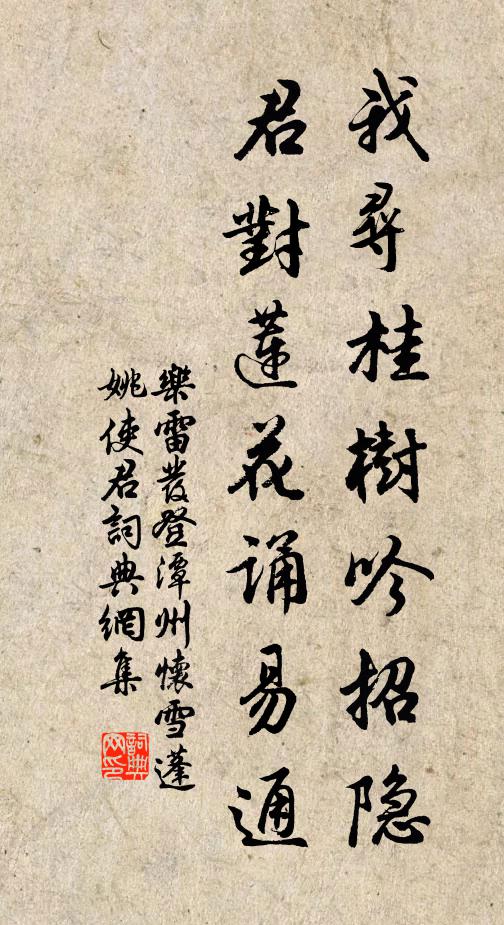 我尋桂樹吟招隐
君對蓮花誦易通
樂雷發登潭州懷雪蓬
姚使君詞典網集
詞典網印